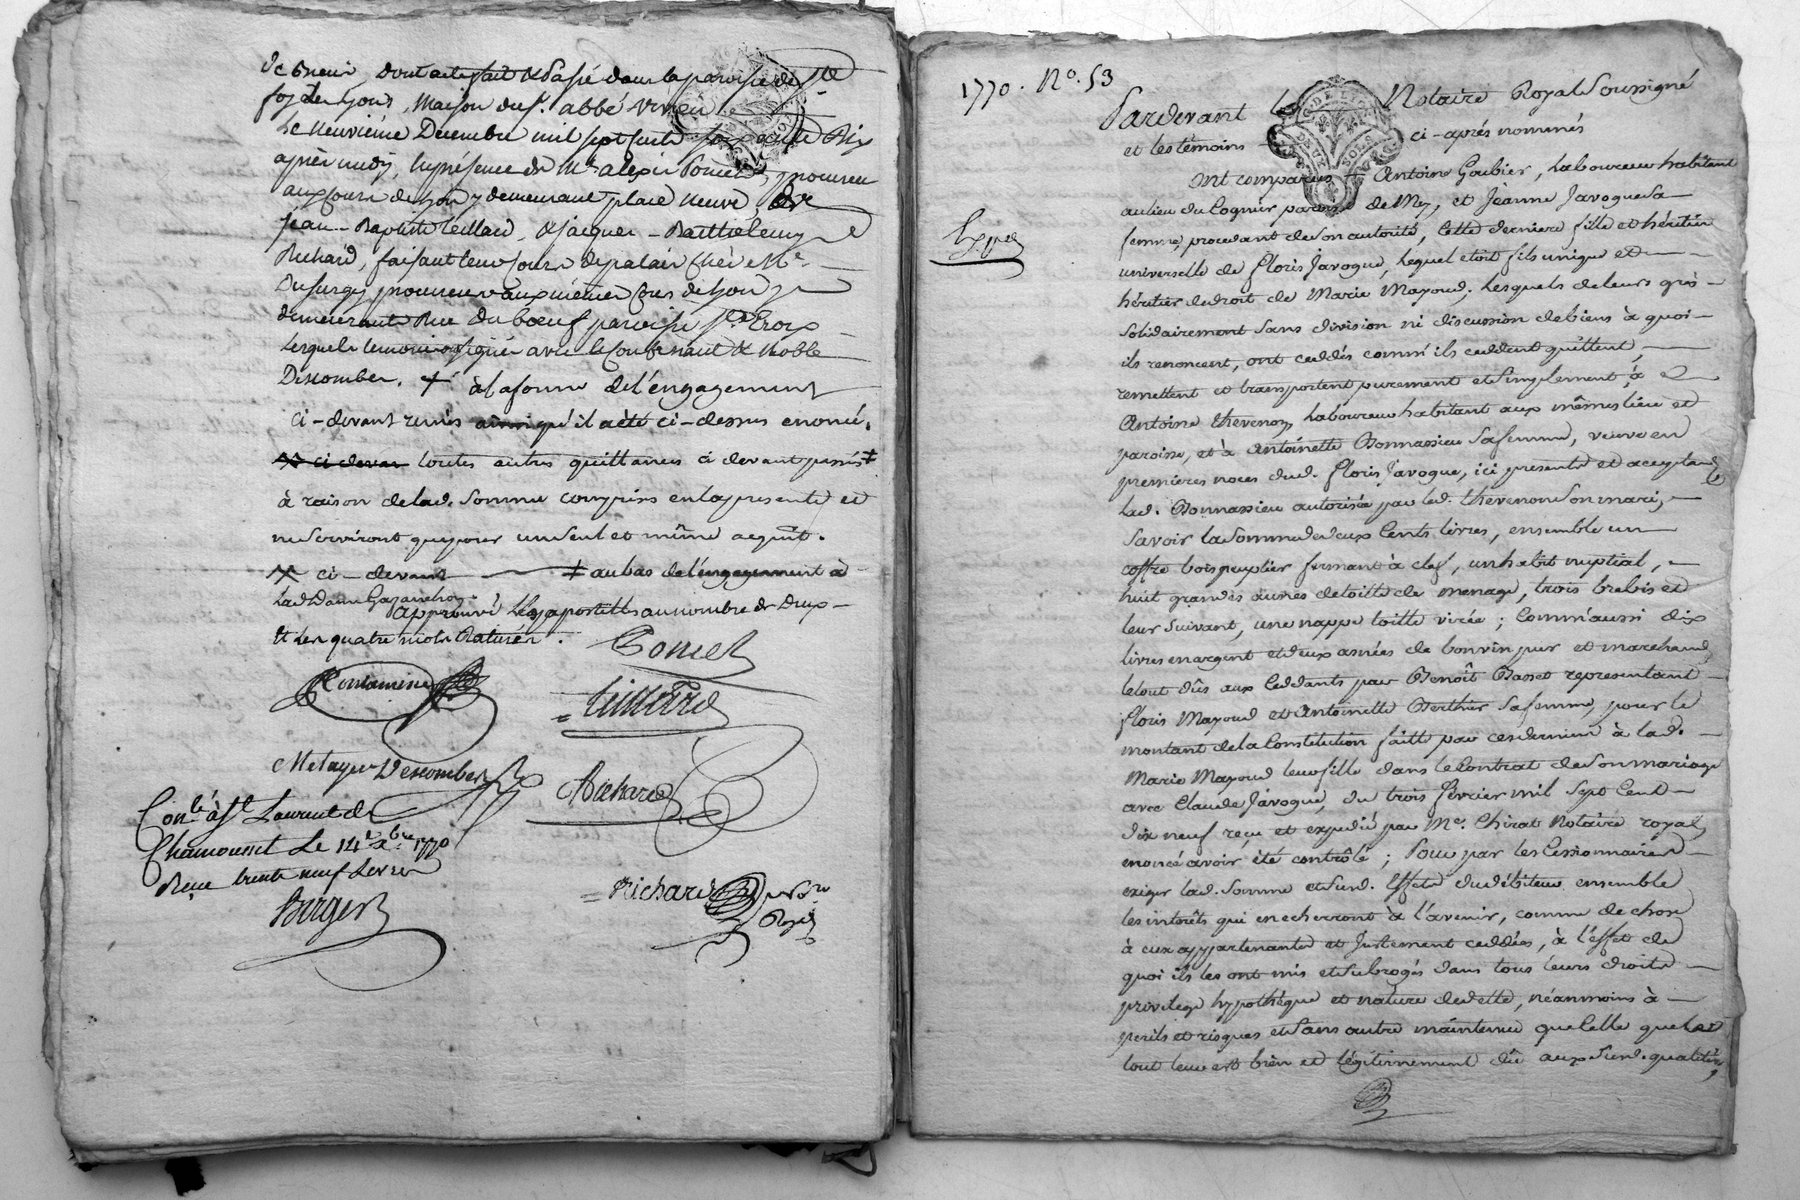 dont acte fait & passé dans la paroisse de Ste
foy Les Lyon, Maison du Sr. abbé
Le neuvième Decembre mil sept cents soixante Dix
après midy, En présence de Me alexis Poncet, procureur
aux Cours de Lyon y demeurant place neuve
Jean-Baptiste teillard, & Jacques-Barthelemy
Richard, faisant leur Cours de palais chés Me
procureur aux mêmes Cours de Lyon y
demeurants Rue Du bœuf paroisse Ste Croix
Lesquels temoins signés avec le Contenant & Noble
Descomber. + à la forme de l'engagement
ci-devant remis ainsi qu'il a été ci-dessus enoncé.
ci devan toutes autres quittances ci devant passés ‡
à raison de lad. Somme comprises en la presente et
ne Serviront que pour un Seul et même acquit.
ci-devant ‡ au bas de l'engagement à
Lad. Dame
Approuvé Les apostilles au nombre de Deux
& Les quatre mots Raturés.
Poncet
Contamine
teillard
Metayer Descomber
Richard
Conlé à St Laurent de
Chamousset Le 14e Xbre 1770
Reçu trente neuf Livres
Berger
Richard
Royal
1770. No. 53
Pardevant Le Notaire Royal Soussigné
et les témoins ci-aprés nommés
Ont comparus Antoine Goubier, Laboureur habitant
au lieu du Cognier paroisse de Mey, et Jeanne Javogue Sa
femme, procedant de son autorité, Cette derniere fille et héritiere
universelle de Floris Javogue, Lequel etoit fils unique et
héritier de droit de Marie Mayoud, Lesquels de leurs grés
Solidairement Sans division ni discussion de biens à quoi
ils renoncent, ont ceddés comm'ils ceddent quittent,
remettent et transportent purement et Simplement, à
Antoine thevenon, Laboureur habitant aux mêmes lieu et
paroisse, et à Antoinette Bonnassieu Sa femme, veuve en
premieres noces dud. Floris Javogue, ici presente et acceptant
Lad. Bonnassieu autorisée par led. thevenon Son mari,
Savoir la Somme de deux Cents livres, ensemble un
coffre bois peuplier fermant à clef, un habit nuptial,
huit grandes aunes de toille de menage, trois brebis et
leur Suivant, une nappe toille virée; Comm'aussi dix
livres en argent et deux asnées de bon vin pur et marchand
le tout dûs aux Ceddants par Benoît Basset representant
Floris Mayoud et Antoinette Berthier Sa femme, pour le
montant de la Constitution faitte par ces derniers à lad.
Marie Mayoud leur fille dans le Contrat de Son mariage
avec Claude Javogue, du trois fevrier mil Sept Cent
dix neuf reçu et expedié par Me. Chirat Notaire royal,
enoncé avoir été contrôlé; Pour par les Cessionnaires
exiger lad. Somme et Susd. Effets du débiteur ensemble
les intérêts qui en echerront à l'avenir, comme de chose
à eux appartenante et Justement ceddée, à l'effet de
quoi ils les ont mis et Subrogés dans tous leurs droits
privilege hypothéque et nature de dette, néanmoins à
perils et risques et Sans autre maintenue que Celle que le
tout leur est bien et légitimement dû aux Susd. qualités,